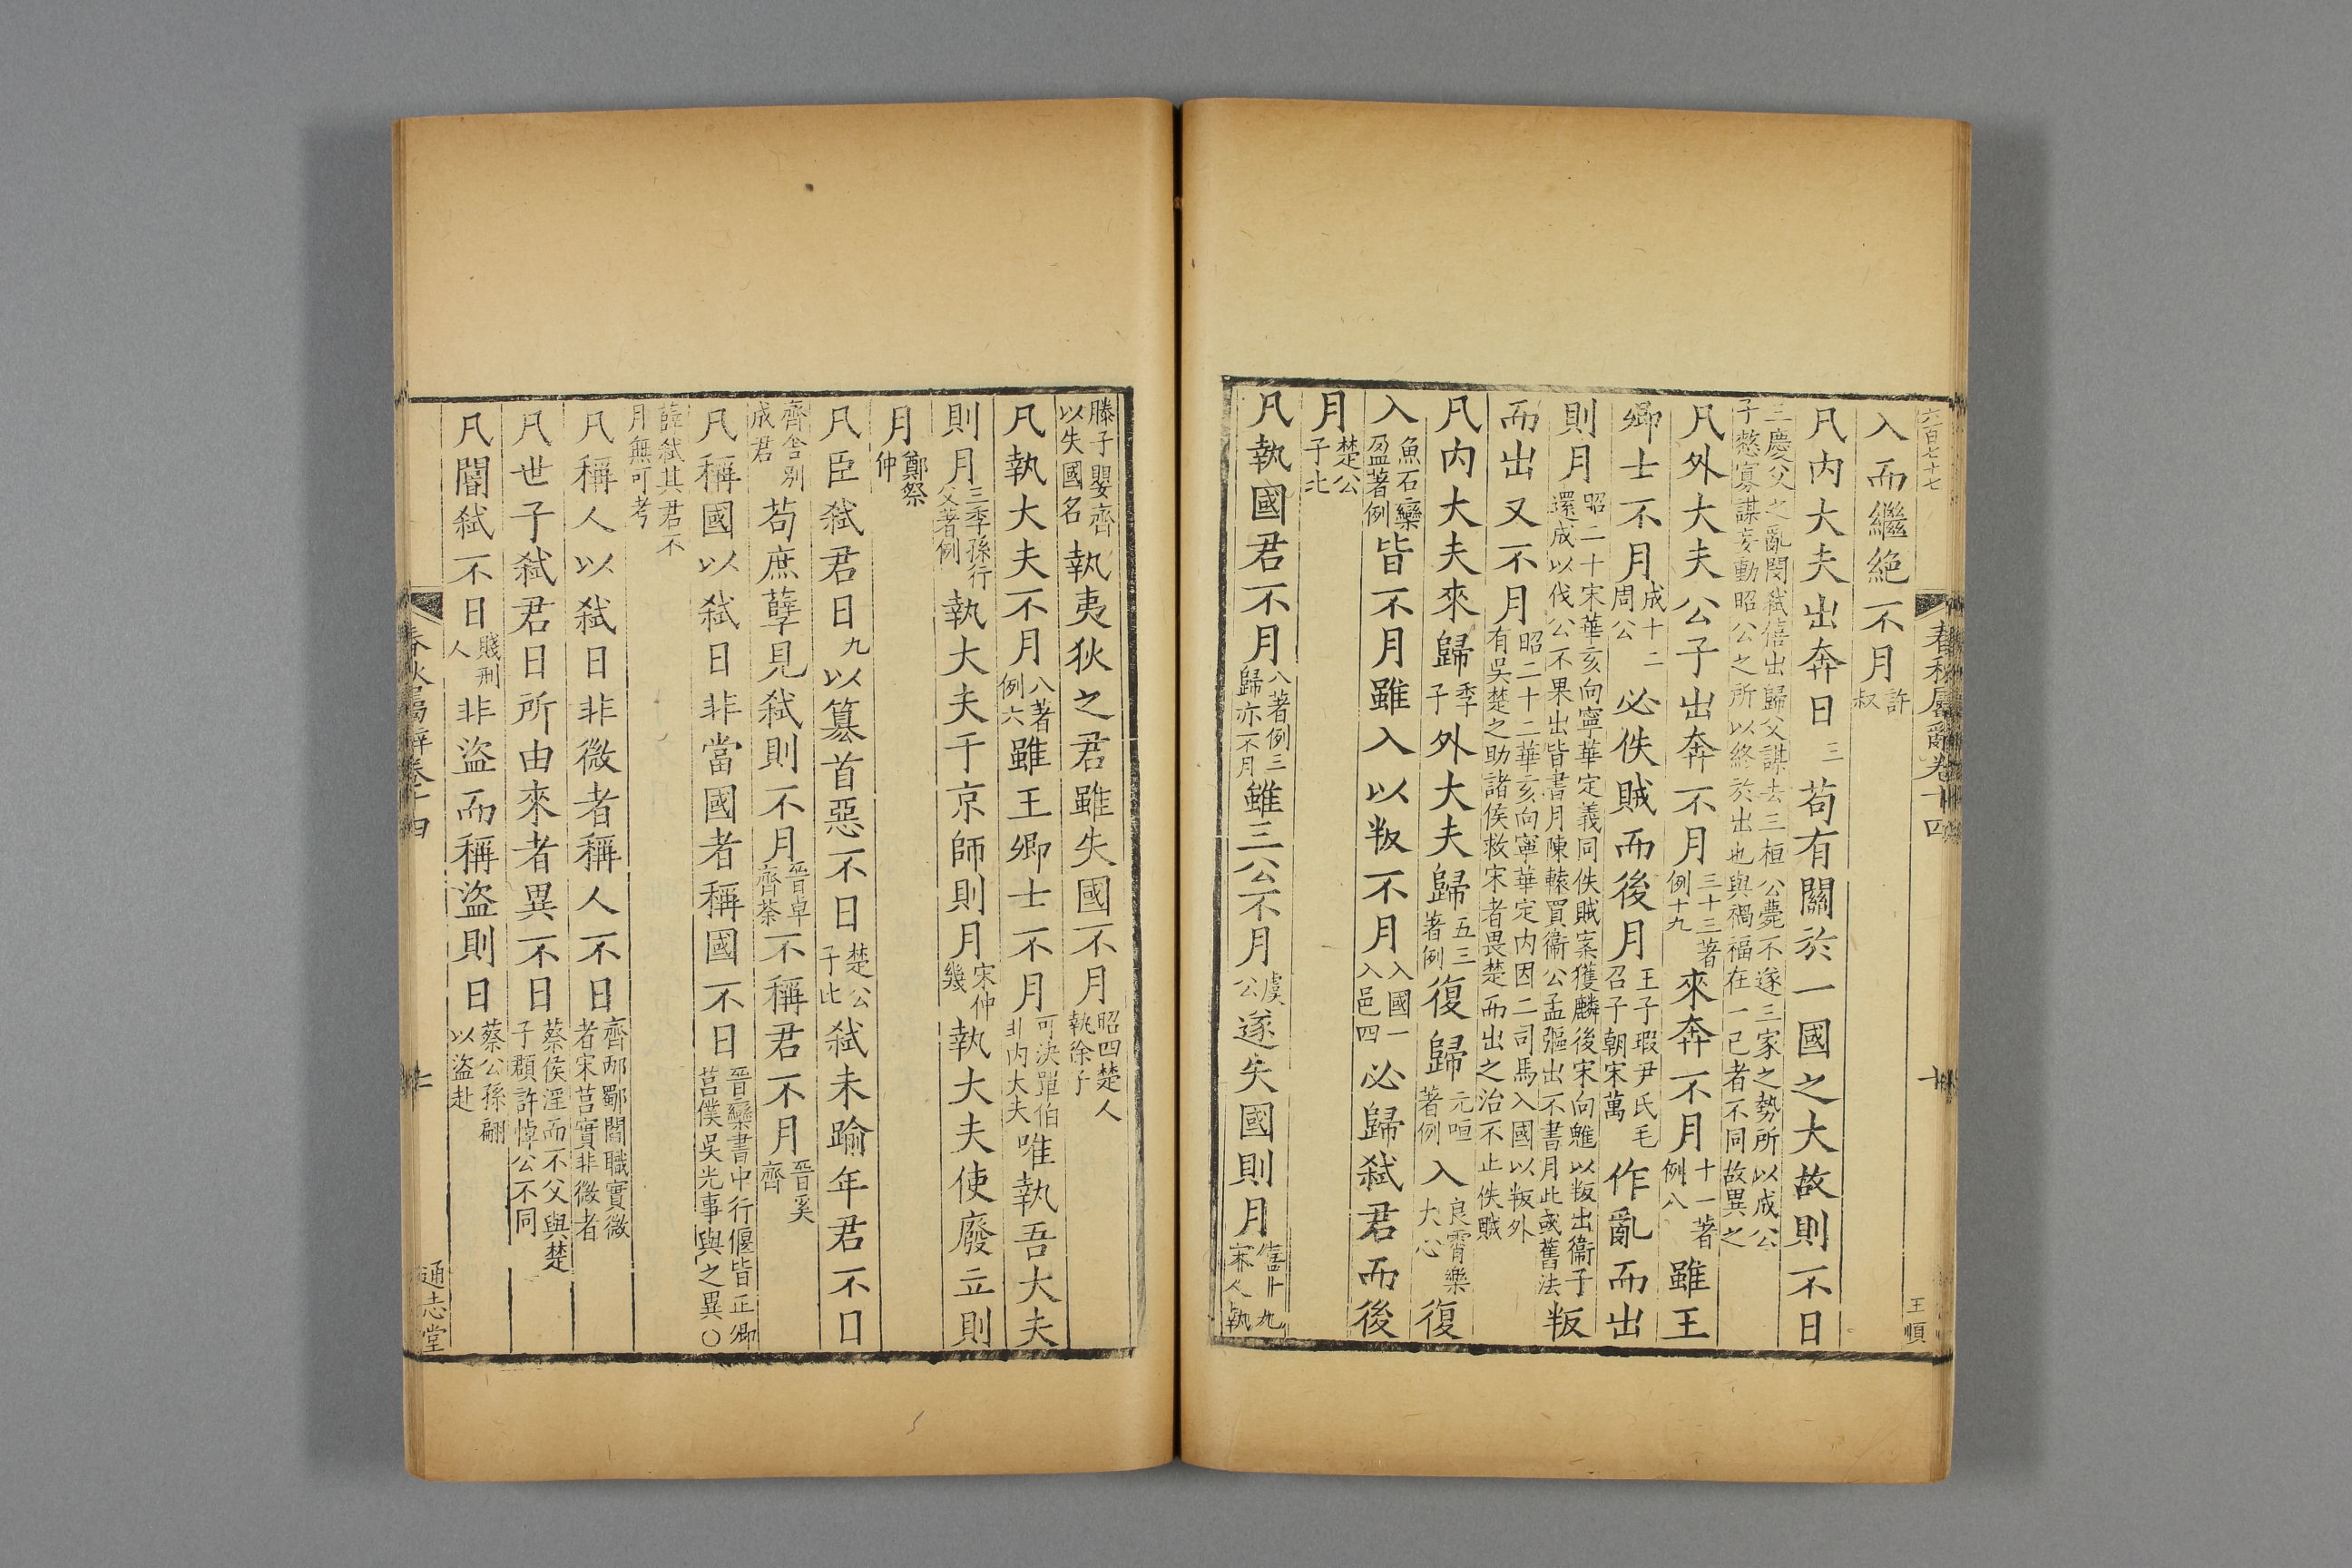 六百七十七
春秋屬辭卷十四
十
王順
入而繼絶不月許叔
凡内大夫出奔日三苟有關於一國之大故則不日
三慶父之亂閔弑僖出歸父謀去三桓公薨不遂三家之勢所以成公
子憖寡謀妄動昭公之所以終於出也與禍福在一己者不同故異之
凡外大夫公子出奔不月三十三著例十九來奔不月十一著例八雖王
卿士不月成十二周公必佚賊而後月王子瑕尹氏毛召子朝宋萬作亂而出
則月昭二十宋華亥向寧華定義同佚賊案獲麟後宋向魋以叛出衞子還成以伐公不果出皆書月陳轅買衞公孟彄出不書月此或舊法叛
而出又不月昭二十二華亥向寧華定内因二司馬入國以叛外有吳楚之助諸侯救宋者畏楚而出之治不止佚賊
凡内大夫來歸季子外大夫歸五三著例復歸元咺著例入良霄樂大心復
入魚石欒盈著例皆不月雖入以叛不月入國一入邑四必歸弑君而後
月楚公子比
凡執國君不月八著例三歸亦不月雖三公不月虞公遂失國則月僖十九宋人執
滕子嬰齊以失國名執夷狄之君雖失國不月昭四楚人執徐子
凡執大夫不月八著例六雖王卿士不月可決單伯非内大夫唯執吾大夫
則月三季孫行父著例執大夫于京師則月宋仲幾執大夫使廢立則
月鄭祭仲
凡臣弑君日九以簒首惡不日楚公子比弑未踰年君不日
齊舍别成君苟庶孽見弑則不月晉卓齊荼不稱君不月晉奚齊
凡稱國以弑日非當國者稱國不日晉欒書中行偃皆正卿莒僕吳光事與之異〇
薛弑其君不月無可考
凡稱人以弑日非微者稱人不日齊邴歜閻職實微者宋莒實非微者
凡世子弑君日所由來者異不日蔡侯淫而不父與楚子頵許悼公不同
凡閽弑不日賤刑人非盜而稱盜則日蔡公孫翩以盜赴
春秋屬辭卷十四
通志堂